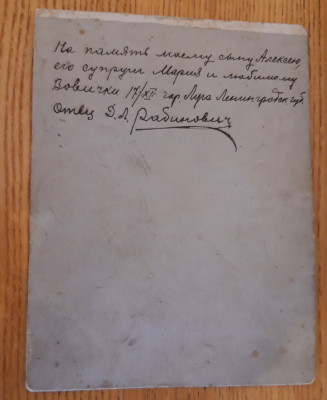 На память моему сыну Алексею,
его супруги Мария и любимому
Вовички 17/XII гор Луга Ленинградск губ.
Отец Д. Л. Рабинович